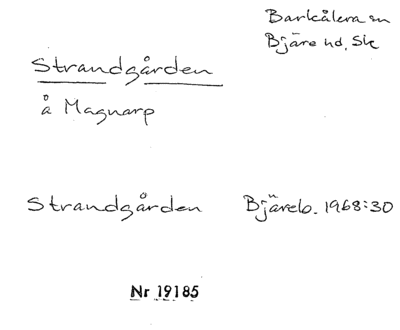 Barkåkra sn
Bjäre hd, Sk
Strandgården
å Magnarp
Strandgården Bjäreb. 1968:30
Nr 19185